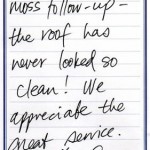 moss follow-up -
the roof has
never looked so
clean! We
appreciate the
great service.